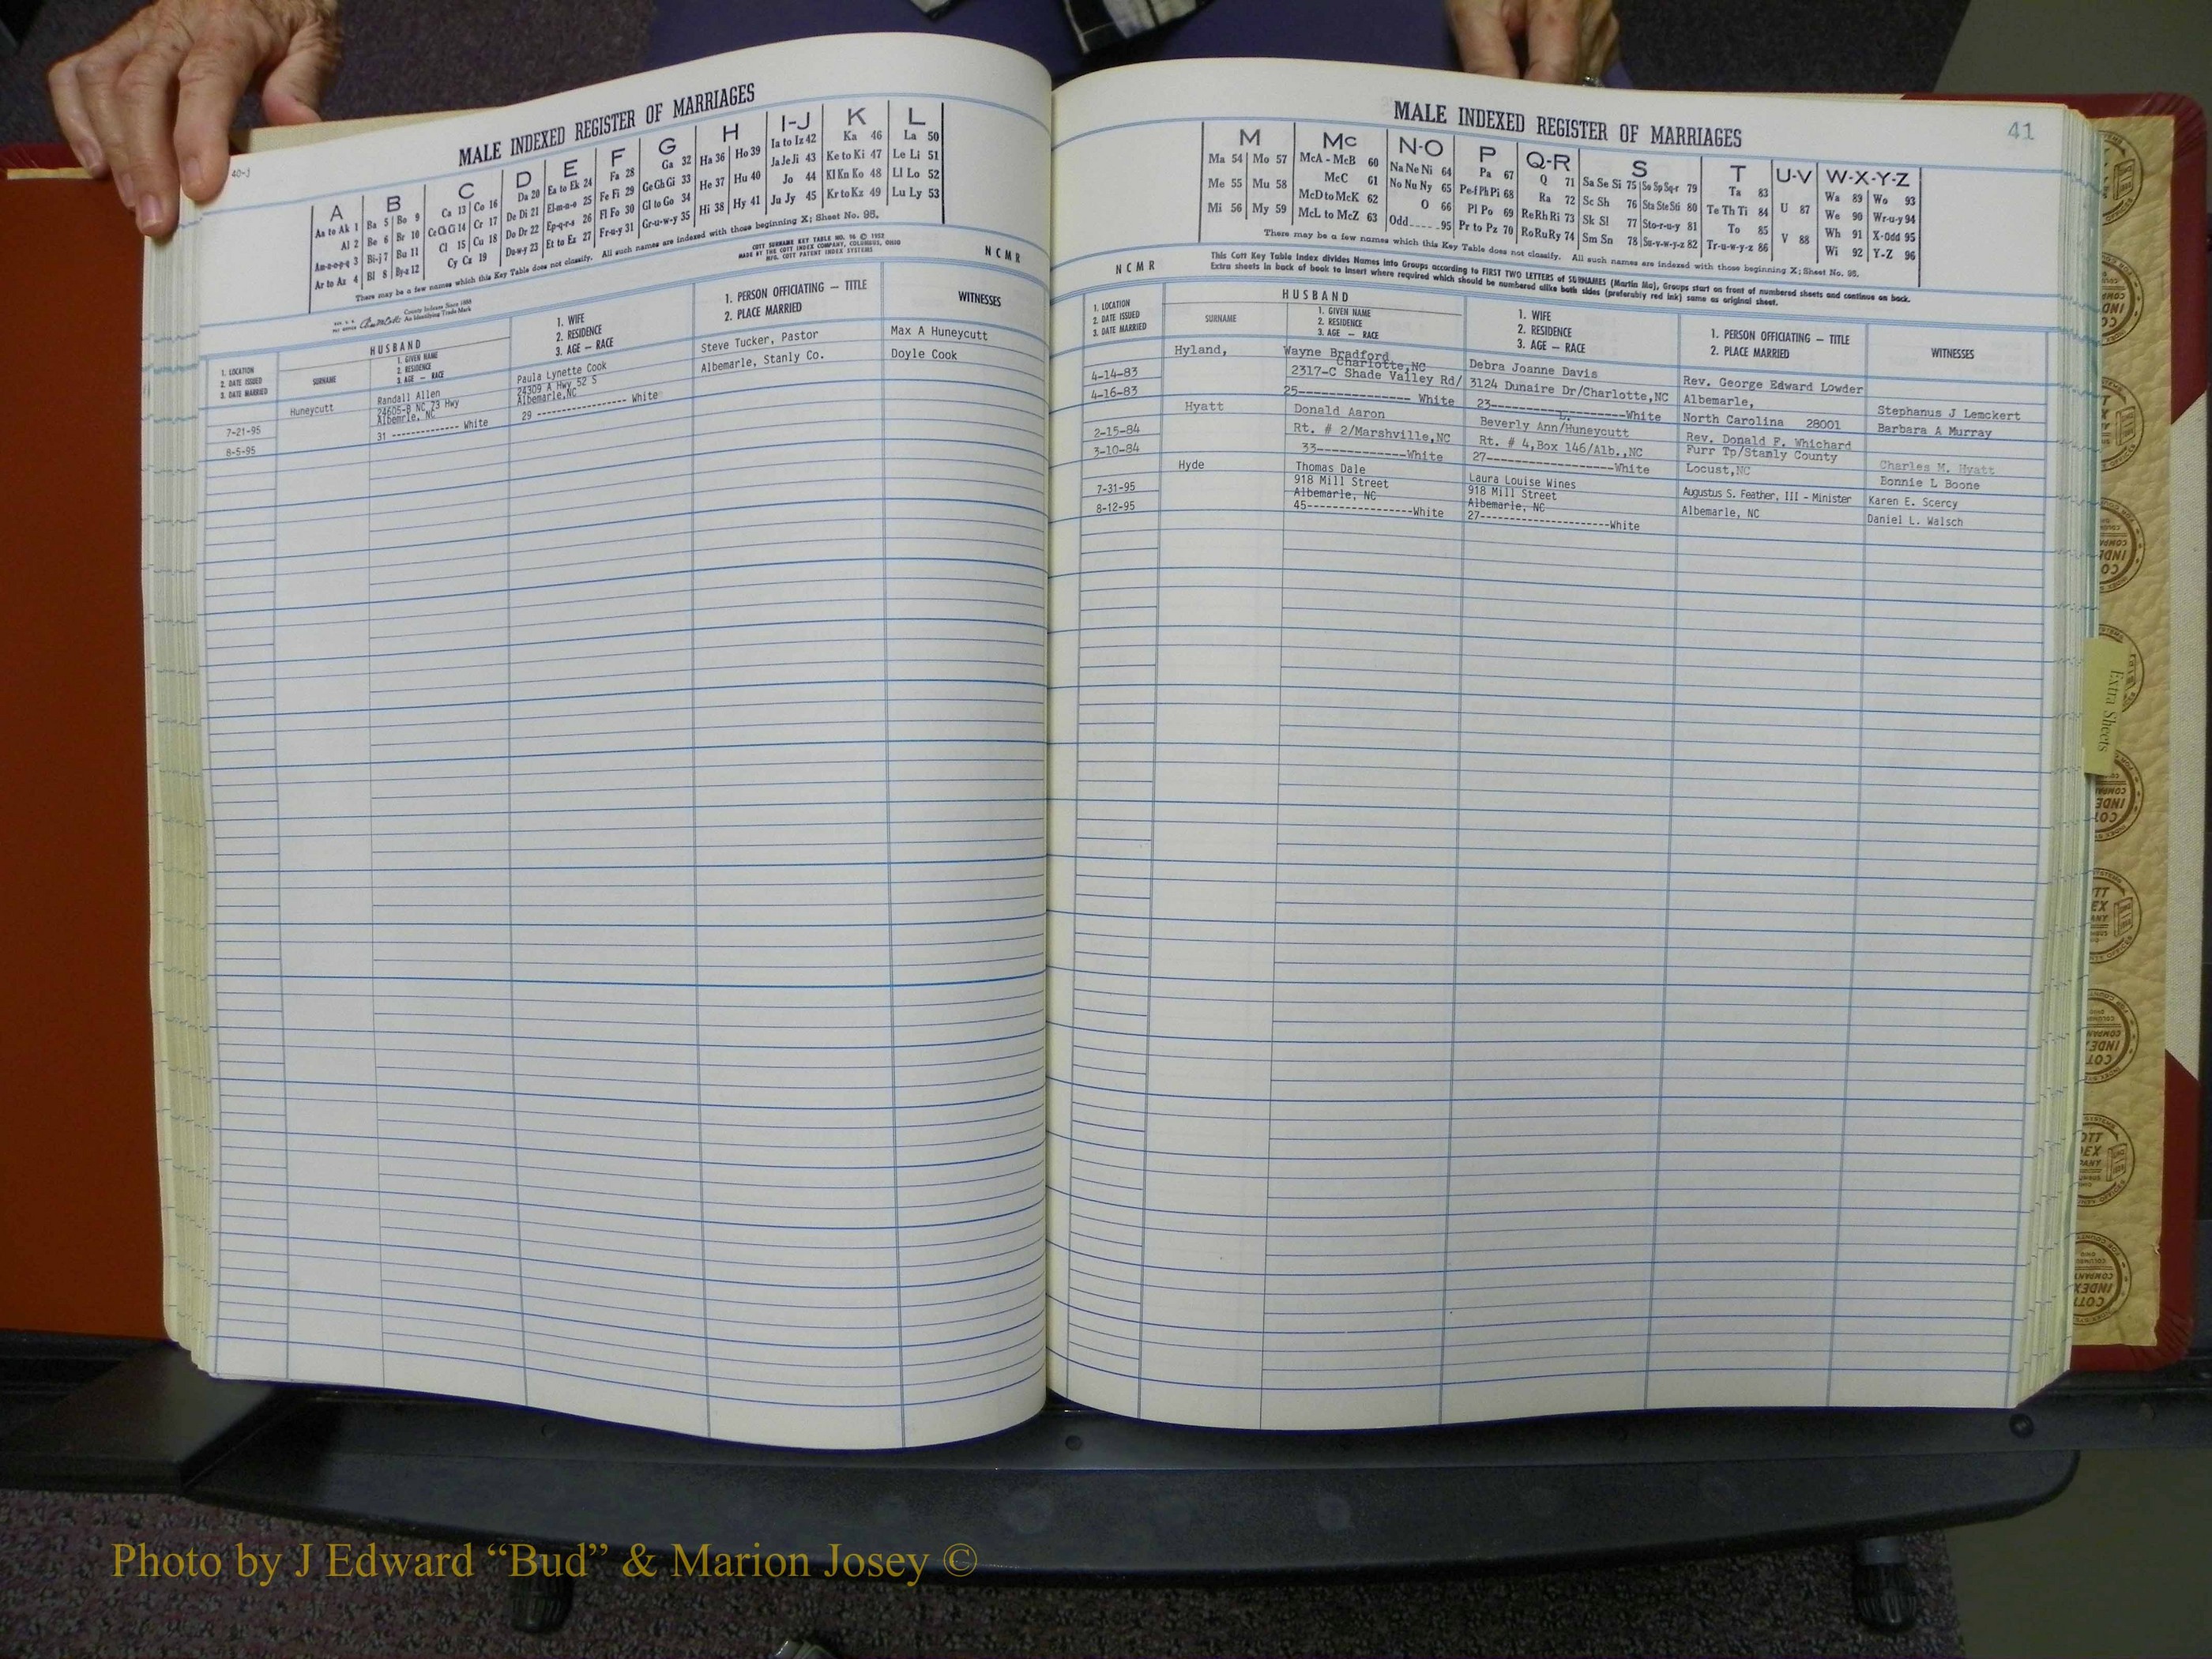 MALE INDEXED REGISTER OF MARRIAGES
40-J
A B C D E F G H I-J K L
Aa to Ak 1 Ba 5 Bo 9 Ca 13 Co 16 Da 20 Ea to Ek 24 Fa 28 Ga 32 Ha 36 Ho 39 Ia to Iz 42 Ka 46 La 50
Al 2 Be 6 Br 10 Ce Ch Ci 14 Cr 17 De Di 21 El-m-n-o 25 Fe Fi 29 Ge Gh Gi 33 He 37 Hu 40 Ja Je Ji 43 Ke to Ki 47 Le Li 51
Am-n-o-p-q 3 Bi-j 7 Bu 11 Cl 15 Cu 18 Do Dr 22 Ep-q-r-s 26 Fl Fo 30 Gl to Go 34 Hi 38 Hy 41 Jo 44 Kl Kn Ko 48 Ll Lo 52
Ar to Az 4 Bl 8 By-z 12 Cy Cz 19 Du-w-y 23 Et to Ez 27 Fr-u-y 31 Gr-u-w-y 35 Ju Jy 45 Kr to Kz 49 Lu Ly 53
There may be a few names which this Key Table does not classify. All such names are indexed with those beginning X; Sheet No. 95.
COTT SURNAME KEY TABLE NO. 96 © 1952
MADE BY THE COTT INDEX COMPANY, COLUMBUS, OHIO
MFG. COTT PATENT INDEX SYSTEMS
N C M R
County Indexes Since 1888
An Identifying Trade Mark
HUSBAND
1. LOCATION
2. DATE ISSUED
3. DATE MARRIED
SURNAME
1. GIVEN NAME
2. RESIDENCE
3. AGE — RACE
1. WIFE
2. RESIDENCE
3. AGE — RACE
1. PERSON OFFICIATING — TITLE
2. PLACE MARRIED
WITNESSES
Huneycutt
7-21-95
8-5-95
Randall Allen
24605-B NC 73 Hwy
Albemrle, NC
31 ------------- White
Paula Lynette Cook
24309 A Hwy 52 S
Albemarle,NC
29 ----------------- White
Steve Tucker, Pastor
Albemarle, Stanly Co.
Max A Huneycutt
Doyle Cook
MALE INDEXED REGISTER OF MARRIAGES
41
M Mc N-O P Q-R S T U-V W-X-Y-Z
Ma 54 Mo 57 McA - McB 60 Na Ne Ni 64 Pa 67 Q 71 Sa Se Si 75 So Sp Sq-r 79 Ta 83 Wa 89 Wo 93
Me 55 Mu 58 McC 61 No Nu Ny 65 Pe-f Ph Pi 68 Ra 72 Sc Sh 76 Sta Ste Sti 80 Te Th Ti 84 U 87 We 90 Wr-u-y 94
Mi 56 My 59 McD to McK 62 O 66 Pl Po 69 Re Rh Ri 73 Sk Sl 77 Sto-r-u-y 81 To 85 Wh 91 X-Odd 95
McL to McZ 63 Odd......95 Pr to Pz 70 Ro Ru Ry 74 Sm Sn 78 Su-v-w-y-z 82 Tr-u-w-y-z 86 V 88 Wi 92 Y-Z 96
There may be a few names which this Key Table does not classify. All such names are indexed with those beginning X; Sheet No. 95.
N C M R
This Cott Key Table Index divides Names into Groups according to FIRST TWO LETTERS of SURNAMES (Martin Ma), Groups start on front of numbered sheets and continue on back.
Extra sheets in back of book to insert where required which should be numbered alike both sides (preferably red ink) same as original sheet.
HUSBAND
1. LOCATION
2. DATE ISSUED
3. DATE MARRIED
SURNAME
1. GIVEN NAME
2. RESIDENCE
3. AGE — RACE
1. WIFE
2. RESIDENCE
3. AGE — RACE
1. PERSON OFFICIATING — TITLE
2. PLACE MARRIED
WITNESSES
Hyland,
4-14-83
4-16-83
Wayne Bradford
Charlotte,NC
2317-C Shade Valley Rd/
25---------------- White
Debra Joanne Davis
3124 Dunaire Dr/Charlotte,NC
23-------------------White
Rev. George Edward Lowder
Albemarle,
North Carolina 28001
Stephanus J Lemckert
Barbara A Murray
Hyatt
2-15-84
3-10-84
Donald Aaron
Rt. # 2/Marshville,NC
33-------------White
Beverly Ann/Huneycutt
Rt. # 4,Box 146/Alb.,NC
27------------------White
Rev. Donald F. Whichard
Furr Tp/Stanly County
Locust,NC
Charles M. Hyatt
Bonnie L Boone
Hyde
7-31-95
8-12-95
Thomas Dale
918 Mill Street
Albemarle, NC
45-----------------White
Laura Louise Wines
918 Mill Street
Albemarle, NC
27---------------------White
Augustus S. Feather, III - Minister
Albemarle, NC
Karen E. Scercy
Daniel L. Walsch
Extra Sheets
Photo by J Edward “Bud” & Marion Josey ©